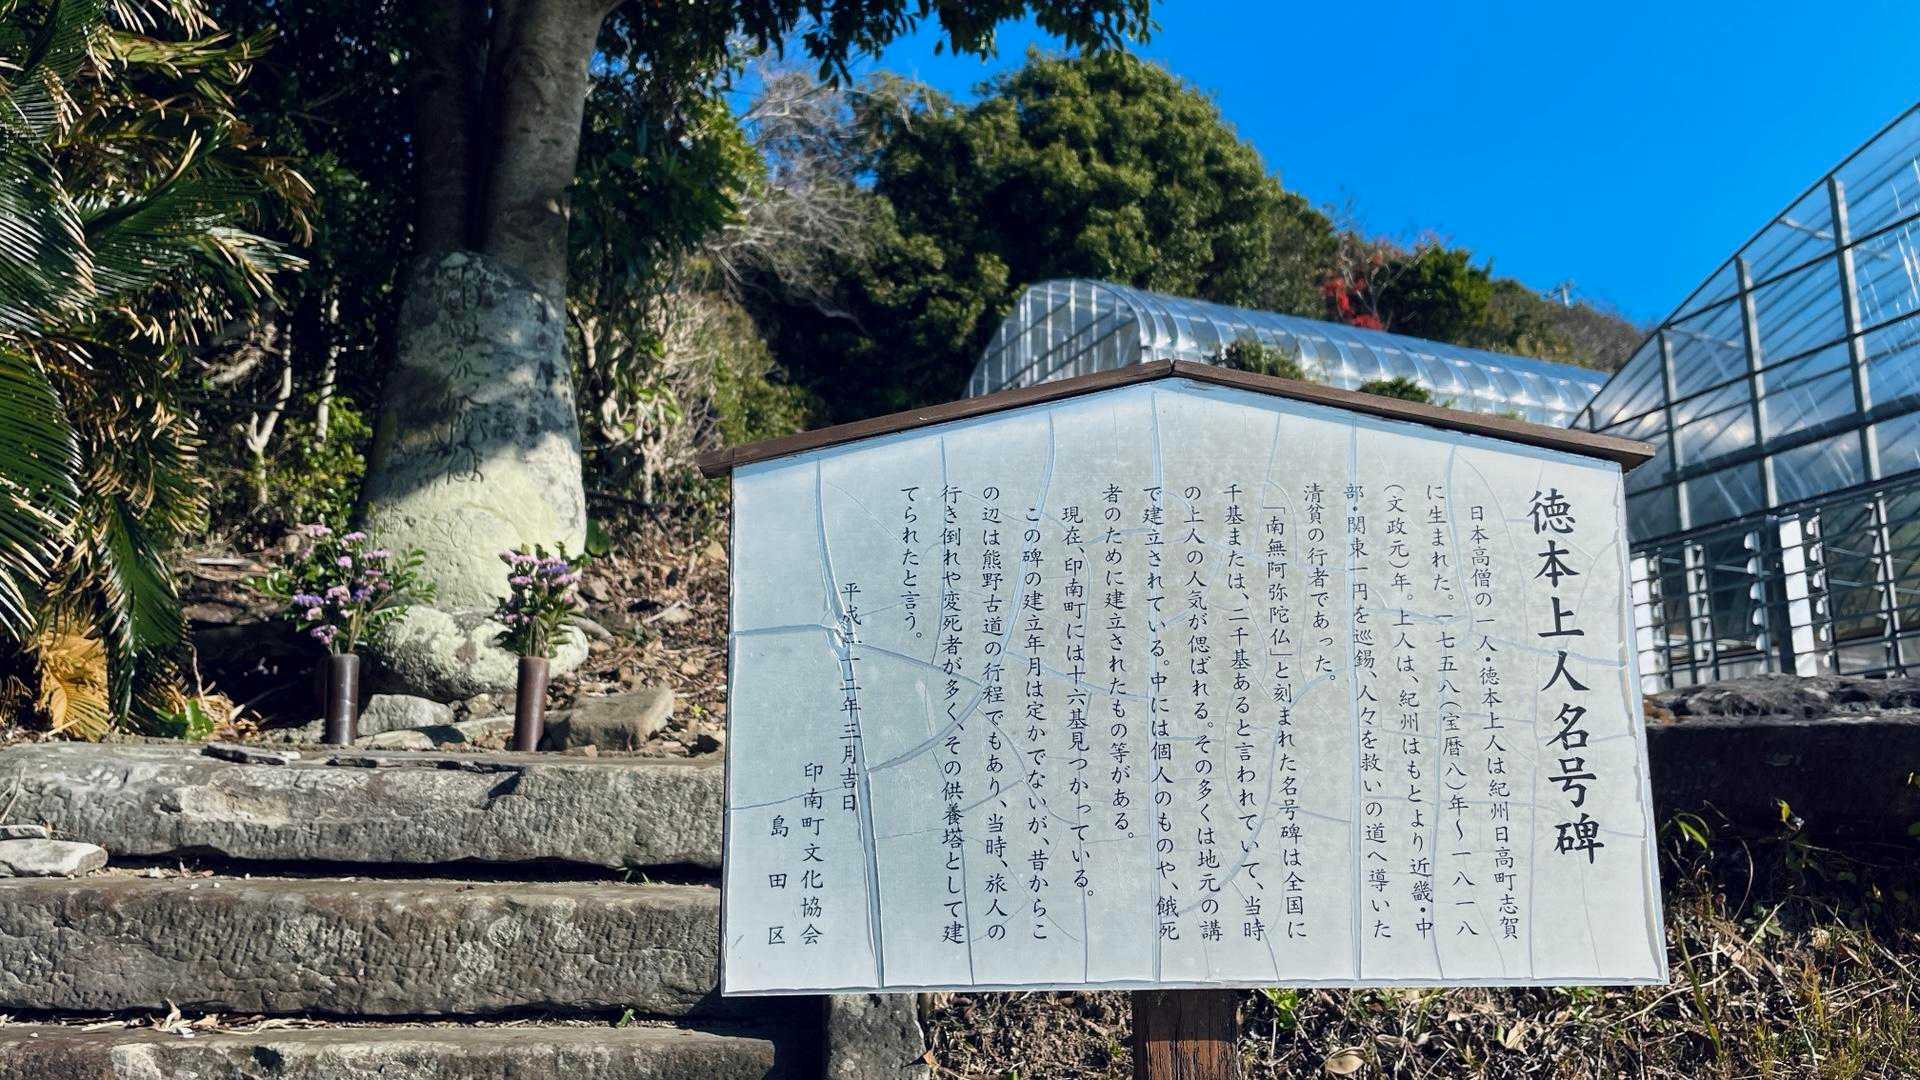 徳本上人名号碑
日本高僧の一人・徳本上人は紀州日高町志賀
に生まれた。一七五八(宝暦八)年～一八一八
(文政元)年。上人は、紀州はもとより近畿・中
部・関東一円を巡錫、人々を救いの道へ導いた
清貧の行者であった。
「南無阿弥陀仏」と刻まれた名号碑は全国に
千基または、二千基あると言われていて、当時
の上人の人気が偲ばれる。その多くは地元の講
で建立されている。中には個人のものや、餓死
者のために建立されたもの等がある。
現在、印南町には十六基見つかっている。
この碑の建立年月は定かでないが、昔からこ
の辺は熊野古道の行程でもあり、当時、旅人の
行き倒れや変死者が多く、その供養塔として建
てられたと言う。
平成二十二年三月吉日
印南町文化協会
島田区